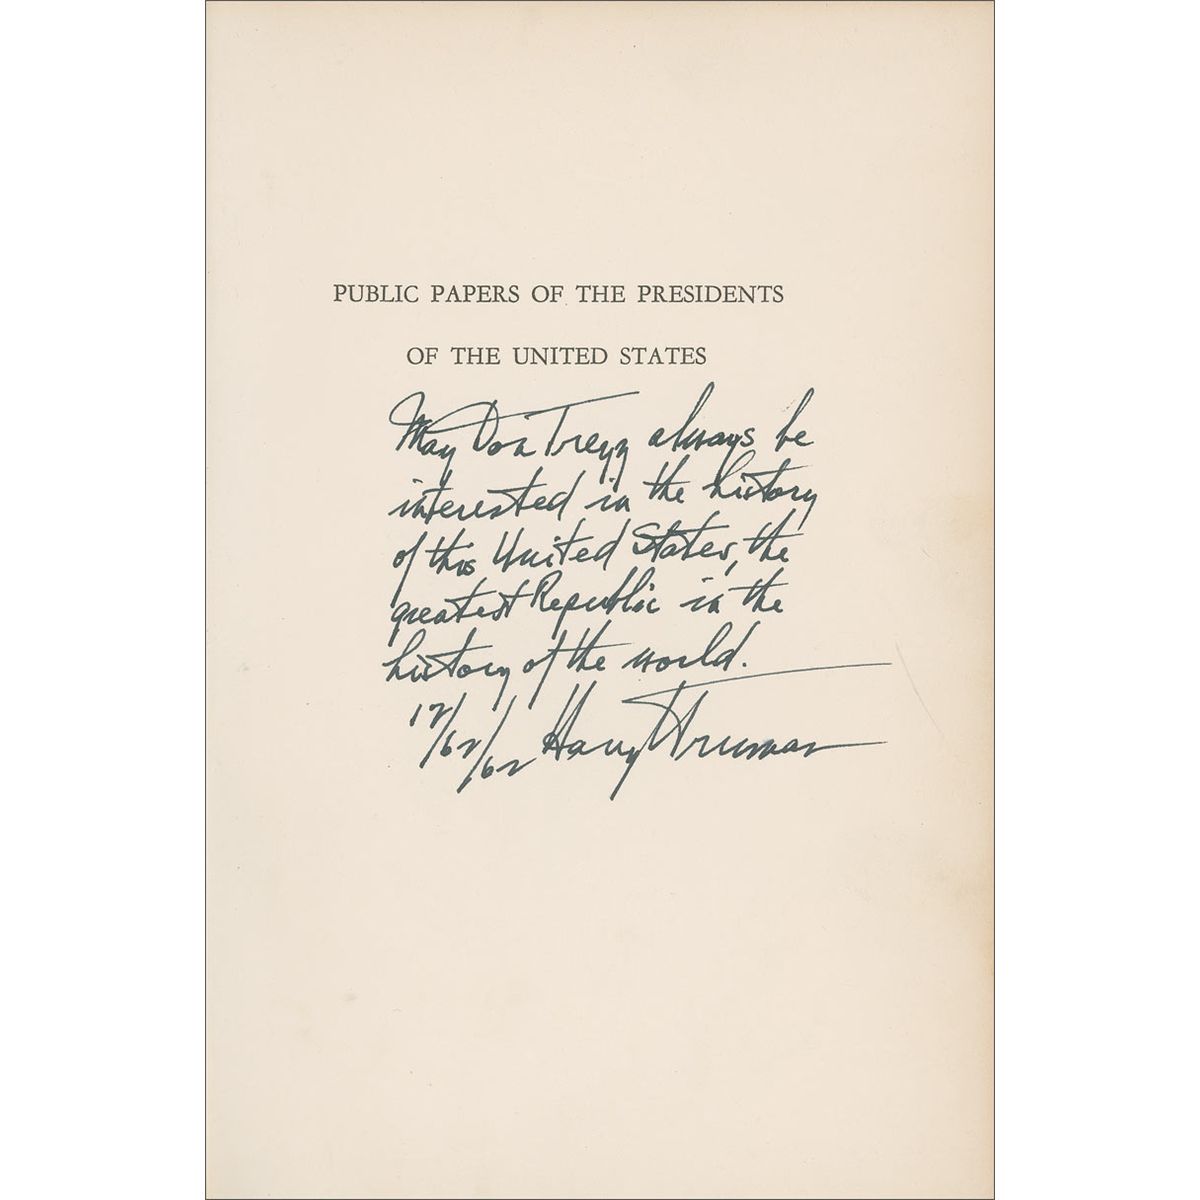 PUBLIC PAPERS OF THE PRESIDENTS
OF THE UNITED STATES
May Don always be
interested in the history
of this United States, the
greatest Republic in the
history of the world.
12/62/62 Harry Truman